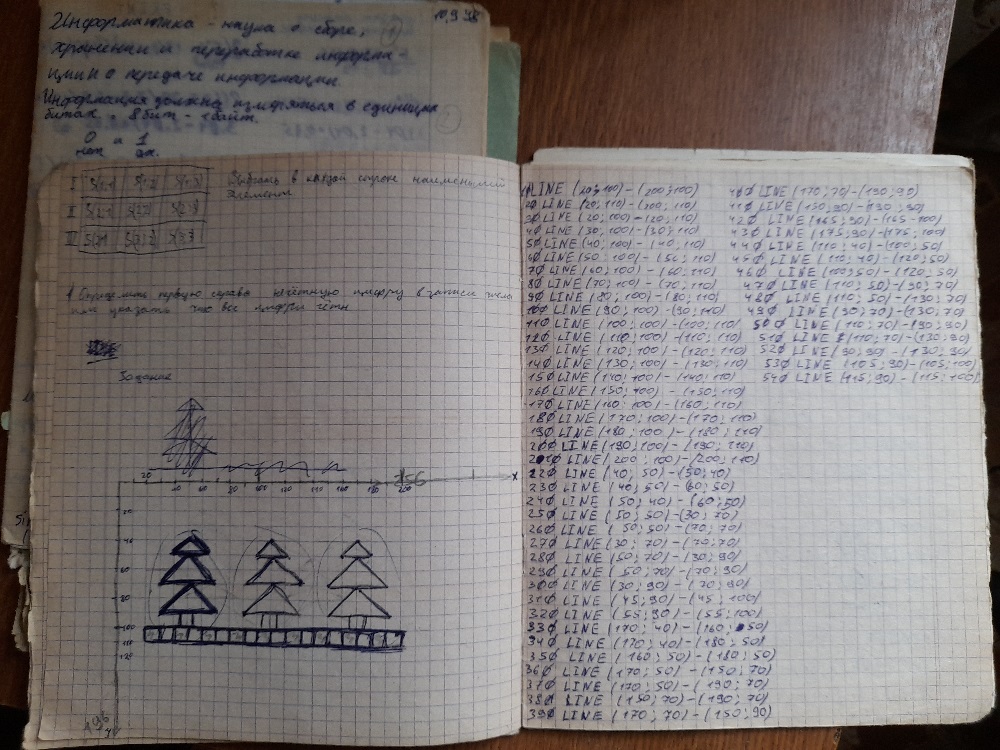 10,9 98
Информатика - наука о сборе,
хранении и переработке информа-
ции и о передаче информации.
Информация должна измеряться в единицах
битах. 8 бит - 1 байт.
0 и 1
нет да.
I S(1;1) S(1;2) S(1;3)
II S(2;1) S(2;2) S(2;3)
III S(3;1) S(3;2) S(3;3)
Выбрать в каждой строке наименьший
элемент
1 Определить первую справа нечётную цифру в записи числа
или указать что все цифры четн.
Задание
20 40 60 80 100 120 140 156 180 200 x
20
40
60
80
100
110
120
y
10 LINE (20;100)-(200;100)
20 LINE (20;110)-(200;110)
30 LINE (20;100)-(20;110)
40 LINE (30;100)-(30;110)
50 LINE (40;100)-(40;110)
60 LINE (50;100)-(50;110)
70 LINE (60;100)-(60;110)
80 LINE (70;100)-(70;110)
90 LINE (80;100)-(80;110)
100 LINE (90;100)-(90;110)
110 LINE (100;100)-(100;110)
120 LINE (110;100)-(110;110)
130 LINE (120;100)-(120;110)
140 LINE (130;100)-(130;110)
150 LINE (140;100)-(140;110)
160 LINE (150;100)-(150;110)
170 LINE (160;100)-(160;110)
180 LINE (170;100)-(170;110)
190 LINE (180;100)-(180;110)
200 LINE (190;100)-(190;110)
210 LINE (200;100)-(200;110)
220 LINE (40;50)-(50;40)
230 LINE (40;50)-(60;50)
240 LINE (50;40)-(60;50)
250 LINE (50;50)-(30;70)
260 LINE (50;50)-(70;70)
270 LINE (30;70)-(70;70)
280 LINE (50;70)-(30;90)
290 LINE (50;70)-(70;90)
300 LINE (30;90)-(70;90)
310 LINE (45;90)-(45;100)
320 LINE (55;90)-(55;100)
330 LINE (170;40)-(160;50)
340 LINE (170;40)-(180;50)
350 LINE (160;50)-(180;50)
360 LINE (170;50)-(150;70)
370 LINE (170;50)-(190;70)
380 LINE (150;70)-(190;70)
390 LINE (170;70)-(150;90)
400 LINE (170;70)-(190;90)
410 LINE (150;90)-(190;90)
420 LINE (165;90)-(165-100)
430 LINE (175;90)-(175;100)
440 LINE (110;40)-(100;50)
450 LINE (110;40)-(120;50)
460 LINE (100;50)-(120;50)
470 LINE (110;50)-(90;70)
480 LINE (110;50)-(130;70)
490 LINE (90;70)-(130;70)
500 LINE (110;70)-(90;90)
510 LINE (110;70)-(130;90)
520 LINE (90;90)-(130;90)
530 LINE (105;90)-(105;100)
540 LINE (115;90)-(115;100)